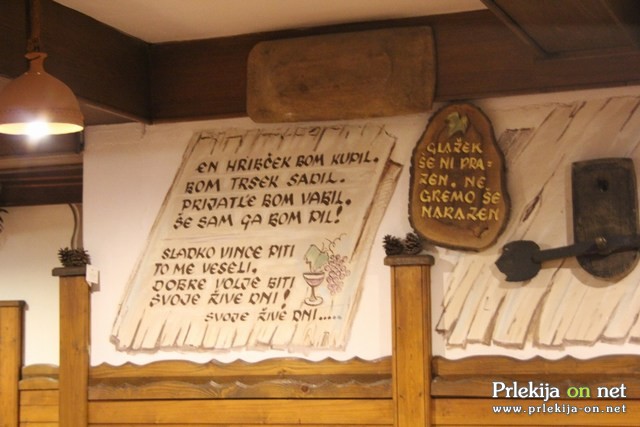 EN HRIBČEK BOM KUPIL.
BOM TRSEK SADIL.
PRIJATL'E BOM VABIL.
ŠE SAM GA BOM PIL!
SLADKO VINCE PITI
TO ME VESELI.
DOBRE VOLJE BITI
SVOJE ŽIVE DNI!
SVOJE ŽIVE DNI.....
GLAŽEK
ŠE NI PRA-
ZEN. NE
GREMO ŠE
NARAZEN
Prlekija on net
www.prlekija-on.net